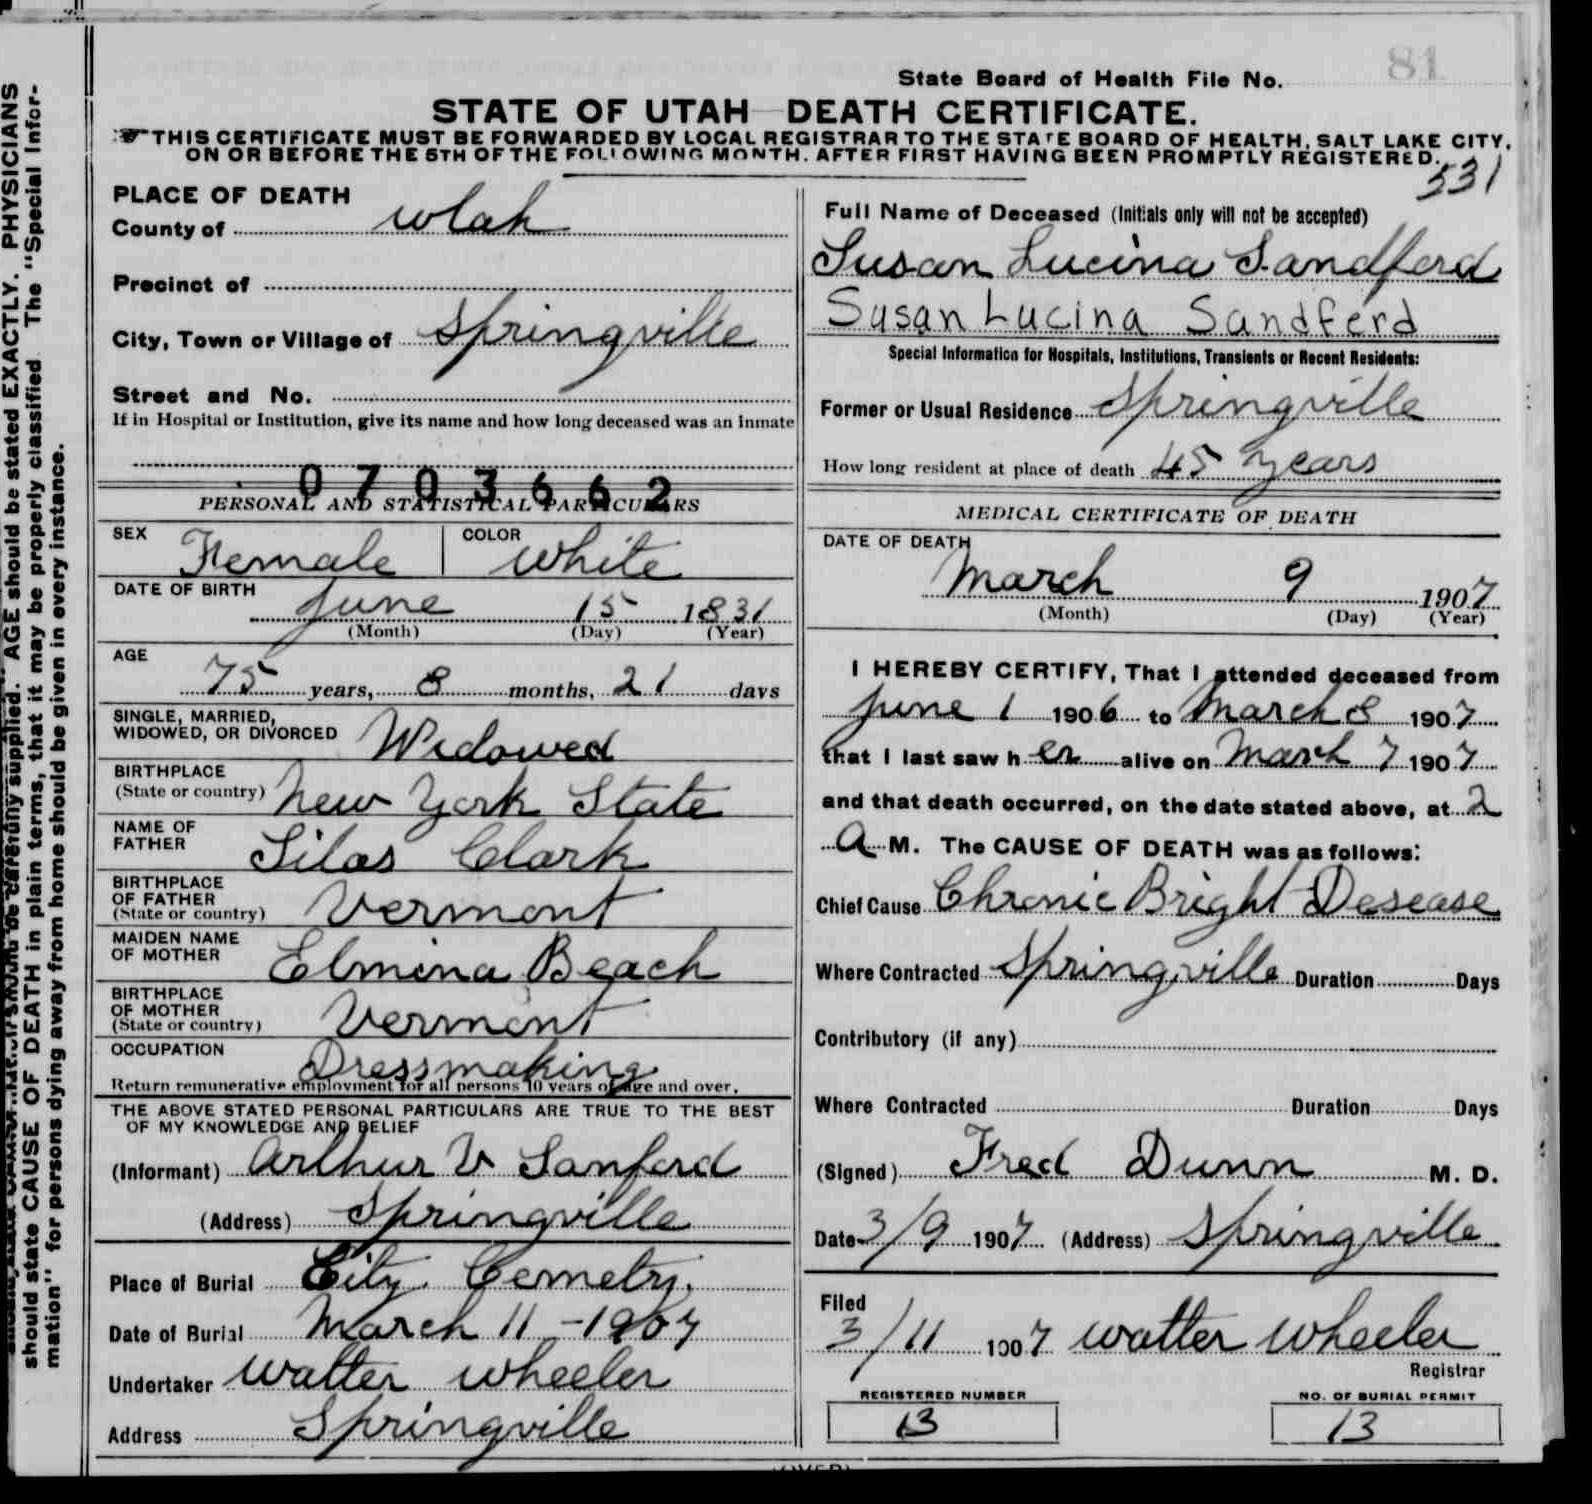 81
State Board of Health File No.
STATE OF UTAH—DEATH CERTIFICATE.
☞THIS CERTIFICATE MUST BE FORWARDED BY LOCAL REGISTRAR TO THE STATE BOARD OF HEALTH, SALT LAKE CITY,
ON OR BEFORE THE 5TH OF THE FOLLOWING MONTH, AFTER FIRST HAVING BEEN PROMPTLY REGISTERED.
331
should state CAUSE OF DEATH in plain terms, that it may be properly classified. The "Special Infor-
mation" for persons dying away from home should be given in every instance.
AGE should be stated EXACTLY. PHYSICIANS
PLACE OF DEATH
County of Utah
Precinct of
City, Town or Village of Springville
Street and No.
If in Hospital or Institution, give its name and how long deceased was an inmate
0703662
PERSONAL AND STATISTICAL PARTICULARS
SEX Female COLOR White
DATE OF BIRTH
June 15 1831
(Month) (Day) (Year)
AGE
75 years, 8 months, 21 days
SINGLE, MARRIED,
WIDOWED, OR DIVORCED Widowed
BIRTHPLACE
(State or country) New York State
NAME OF
FATHER Silas Clark
BIRTHPLACE
OF FATHER
(State or country) Vermont
MAIDEN NAME
OF MOTHER Elmina Beach
BIRTHPLACE
OF MOTHER
(State or country) Vermont
OCCUPATION Dressmaking
Return remunerative employment for all persons 10 years of age and over.
THE ABOVE STATED PERSONAL PARTICULARS ARE TRUE TO THE BEST
OF MY KNOWLEDGE AND BELIEF
(Informant) Arthur V Sanford
(Address) Springville
Place of Burial City Cemetry.
Date of Burial March 11 - 1907
Undertaker Walter Wheeler
Address Springville
Full Name of Deceased (Initials only will not be accepted)
Susan Lucina Sandferd
Susan Lucina Sandferd
Special Information for Hospitals, Institutions, Transients or Recent Residents:
Former or Usual Residence Springville
How long resident at place of death 45 years
MEDICAL CERTIFICATE OF DEATH
DATE OF DEATH
March 9 1907
(Month) (Day) (Year)
I HEREBY CERTIFY, That I attended deceased from
June 1 1906 to March 8 1907
that I last saw her alive on March 7 1907
and that death occurred, on the date stated above, at 2
A M. The CAUSE OF DEATH was as follows:
Chief Cause Chronic Bright Desease
Where Contracted Springville Duration Days
Contributory (if any)
Where Contracted Duration Days
(Signed) Fred Dunn M. D.
Date 3/9 1907 (Address) Springville
Filed
3/11 1907 Walter Wheeler
Registrar
REGISTERED NUMBER NO. OF BURIAL PERMIT
13 13
(OVER)